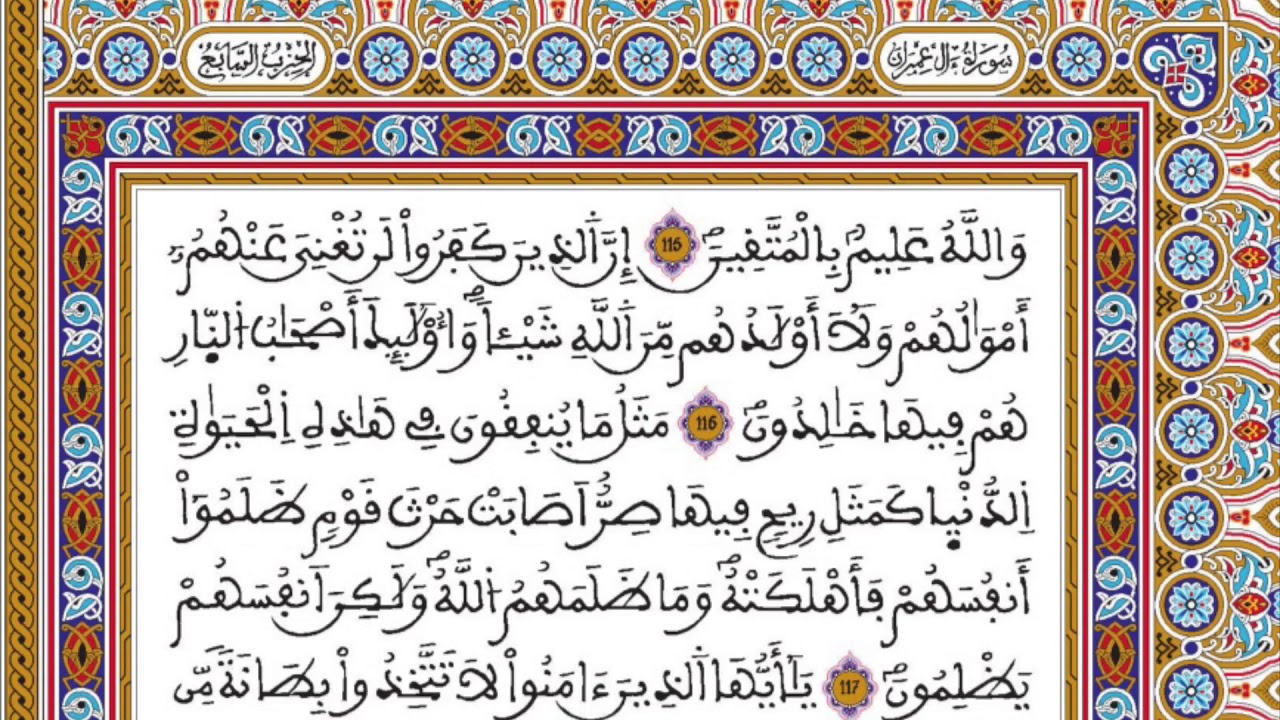 سُورَةُ ءَالِ عِمْرَانَ
الْحِزْبُ السَّابِعُ
وَاللَّهُ عَلِيمٌ بِالْمُتَّقِينَ 115 إِنَّ الَذِينَ كَفَرُواْ لَن تُغْنِيَ عَنْهُمُ
أَمْوَٰلُهُمْ وَلَا أَوْلَٰدُهُم مِّنَ اَللَّهِ شَيْـٔاً وَأُوْلَٰئِكَ أَصْحَٰبُ النّ۪ارِ
هُمْ فِيهَا خَٰلِدُونَ 116 مَثَلُ مَا يُنفِقُونَ فِي هَٰذِهِ اِلْحَيَوٰةِ
اِلدُّنْي۪ا كَمَثَلِ رِيحٍ فِيهَا صِرٌّ اَصَابَتْ حَرْثَ قَوْمٍ ظَلَمُوٓاْ
أَنفُسَهُمْ فَأَهْلَكَتْهُ وَمَا ظَلَمَهُمُ اللَّهُ وَلَٰكِنَ اَنفُسَهُمْ
يَظْلِمُونَ 117 يَٰأَيُّهَا اَلذِينَ ءَامَنُواْ لَا تَتَّخِذُواْ بِطَانَةً مِّن